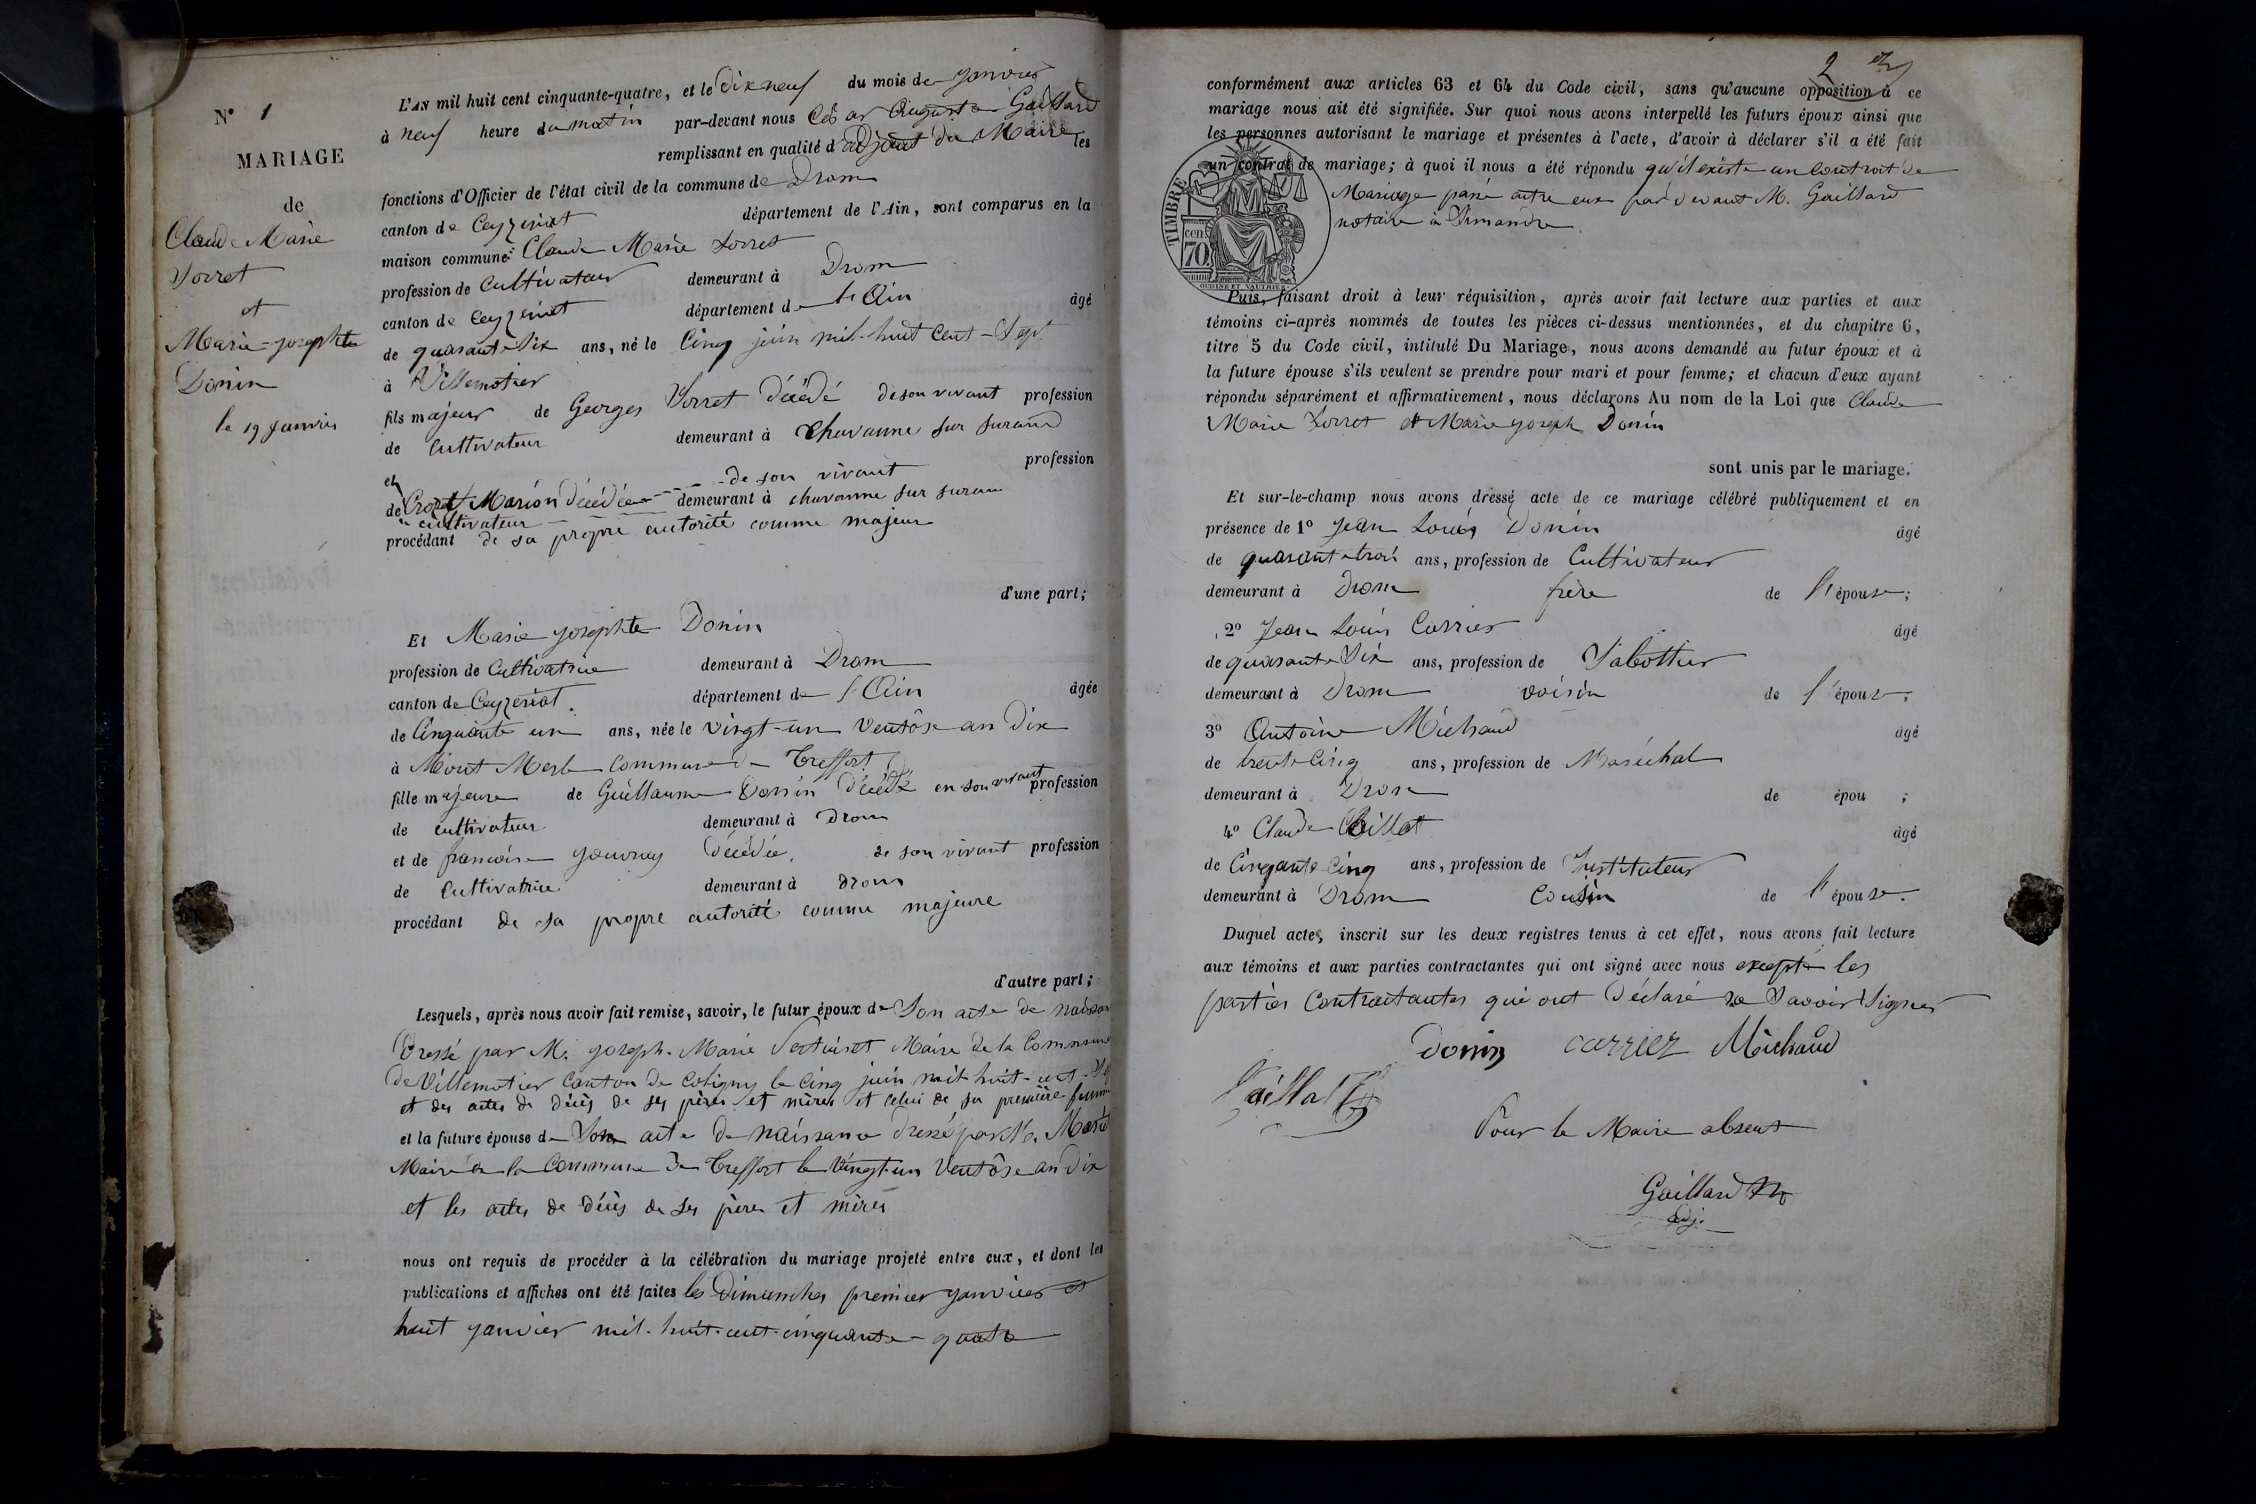 N° 1
MARIAGE
de
Claude Marie
Vorret
et
Marie-josephte
Donin
le 19 janvier
L'AN mil huit cent cinquante-quatre, et le Dix neuf du mois de janvier
à neuf heure du matin par-devant nous César Auguste Gaillard
remplissant en qualité d'adjoint du Maire les
fonctions d'Officier de l'état civil de la commune de Drom
canton de Ceyzeriat département de l'Ain, sont comparus en la
maison commune: Claude Marie Vorret
profession de Cultivateur demeurant à Drom
canton de Ceyzeriat département de l'Ain âgé
de quarante Six ans, né le Cinq juin mil-huit cent-Sept
à Villemotier
fils majeur de Georges Vorret Décédé de son vivant profession
de Cultivateur demeurant à Chavanne sur Surand
et de son vivant profession
de Marion Décédée demeurant à chavanne sur suran
cultivateur
procédant de sa propre autorité comme majeur
d'une part;
Et Marie josephte Donin
profession de Cultivatrice demeurant à Drom
canton de Ceyzeriat. département de l'Ain âgée
de Cinquante un ans, née le vingt-un Ventôse an Dix
à Mont Merle Commune De Treffort
fille majeure de Guillaume Donin Décédé en son vivant profession
de cultivateur demeurant à Drom
et de francoise gouvray décédée, de son vivant profession
de Cultivatrice demeurant à Drom
procédant de sa propre autorité comme majeure
d'autre part;
Lesquels, après nous avoir fait remise, savoir, le futur époux de Son acte de naissan
Dressé par M. joseph-Marie Maire de la Commune
De Villemotier Canton de Coligny le cinq juin mil huit-cent-Sep
et des actes de décès de ses pères et mères et celui de sa première femme
et la future épouse de Son acte De naissance Dressé par M.
Maire de la Commune De Treffort le Vingt-un Ventôse an Dix
et les actes de Décès de ses pères et mères
nous ont requis de procéder à la célébration du mariage projeté entre eux, et dont les
publications et affiches ont été faites les Dimanches premier janvier et
huit janvier mil-huit-cent-cinquante-quatre
2
conformément aux articles 63 et 64 du Code civil, sans qu'aucune opposition à ce
mariage nous ait été signifiée. Sur quoi nous avons interpellé les futurs époux ainsi que
les personnes autorisant le mariage et présentes à l'acte, d'avoir à déclarer s'il a été fait
un contrat de mariage; à quoi il nous a été répondu qu'il existe un Contrat de
Mariage passé entre eux par devant M. Gaillard
notaire à Simandre
TIMBRE
cen.
70.
OUDINÉ ET VAUTHIER
Puis, faisant droit à leur réquisition, après avoir fait lecture aux parties et aux
témoins ci-après nommés de toutes les pièces ci-dessus mentionnées, et du chapitre 6,
titre 5 du Code civil, intitulé Du Mariage, nous avons demandé au futur époux et à
la future épouse s'ils veulent se prendre pour mari et pour femme; et chacun d'eux ayant
répondu séparément et affirmativement, nous déclarons Au nom de la Loi que Claude
Marie Vorret et Marie joseph Donin
sont unis par le mariage.
Et sur-le-champ nous avons dressé acte de ce mariage célébré publiquement et en
présence de 1° Jean Louis Donin âgé
de quarante trois ans, profession de Cultivateur
demeurant à Drom frère de l'épouse;
2° Jean Louis Carrier âgé
de quarante Six ans, profession de Sabottier
demeurant à Drom voisin de l'épouse;
3° Antoine Michaud âgé
de trente Cinq ans, profession de Maréchal
demeurant à Drom de épou ;
4° Claude âgé
de Cinqante Cinq ans, profession de Instituteur
demeurant à Drom Cousin de l'épouse.
Duquel acte, inscrit sur les deux registres tenus à cet effet, nous avons fait lecture
aux témoins et aux parties contractantes qui ont signé avec nous excepté les
parties Contractantes qui ont Déclaré ne Savoir Signer
Donin carrier Michaud
Pour le Maire absent
Gaillard
adj.